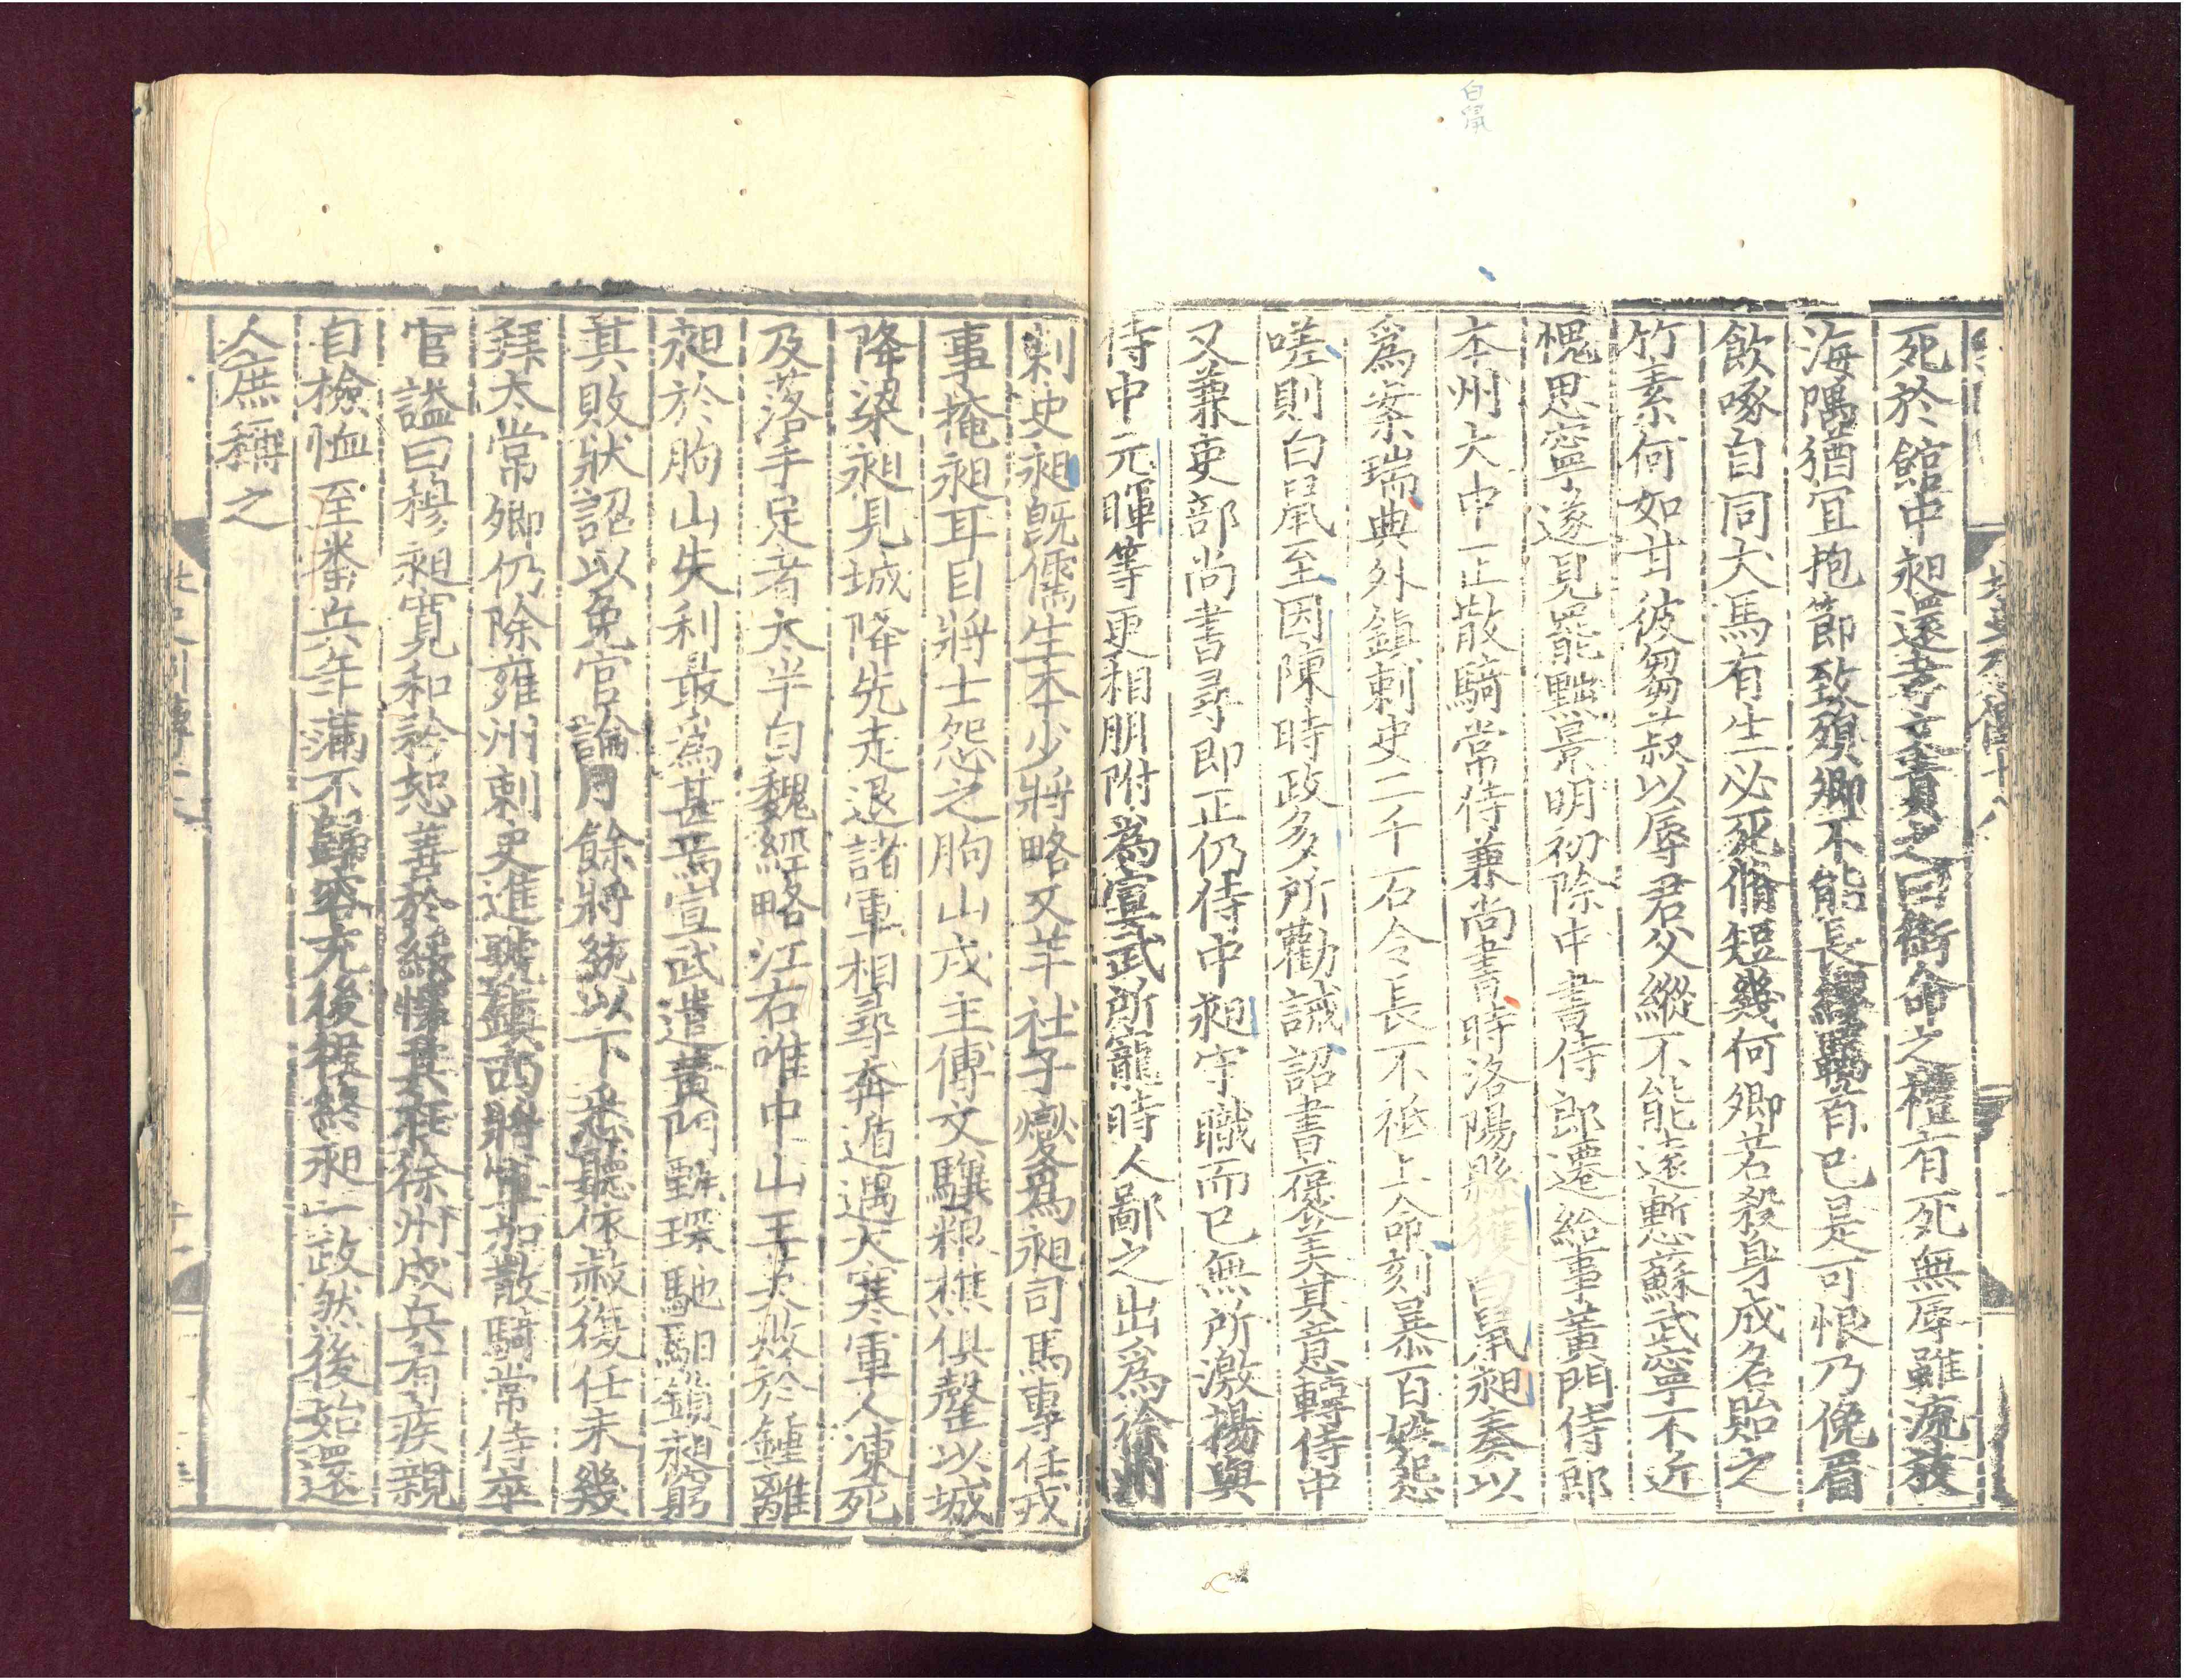 白鼠
死於館中昶還孝文責之曰銜命之禮有死無辱雖流放
海隅猶宜抱節致殞卿不能長纓羈首已是可恨乃俛眉
飲啄自同犬馬有生必死脩短幾何卿若殺身成名貽之
竹素何如甘彼芻菽以辱君父縱不能遠慙蘇武寧不近
愧思寧遂見罷黜景明初除中書侍郎遷給事黃門侍郎
本州大中正散騎常侍兼尚書時洛陽縣獲白鼠昶奏以
爲案瑞典外鎮刺史二千石令長不祗上命刻暴百姓怨
嗟則白鼠至因陳時政多所勸誡詔書襃美其意轉侍中
又兼吏部尚書尋即正仍侍中昶守職而已無所激揚與
侍中元暉等更相朋附爲宣武所寵時人鄙之出爲徐州
刺史昶既儒生本少將略又羊祉子燮爲昶司馬專任戎
事掩昶耳目將士怨之朐山戍主傅文驥粮樵俱罄以城
降梁昶見城降先走退諸軍相尋奔遁遇大寒軍人凍死
及落手足者太半自魏經略江右唯中山王英敗於鍾離
昶於朐山失利最爲甚焉宣武遣黃門甄琛馳驲鎖昶窮
其敗狀詔以免官論月餘將統以下悉聽依赦復任未幾
拜太常卿仍除雍州刺史進號鎮西將軍加散騎常侍卒
官謚曰穆昶寬和矜恕善於綏懷其在徐州戍兵有疾親
自檢恤至番兵年滿不歸容充後役終昶一政然後始還
人庶稱之